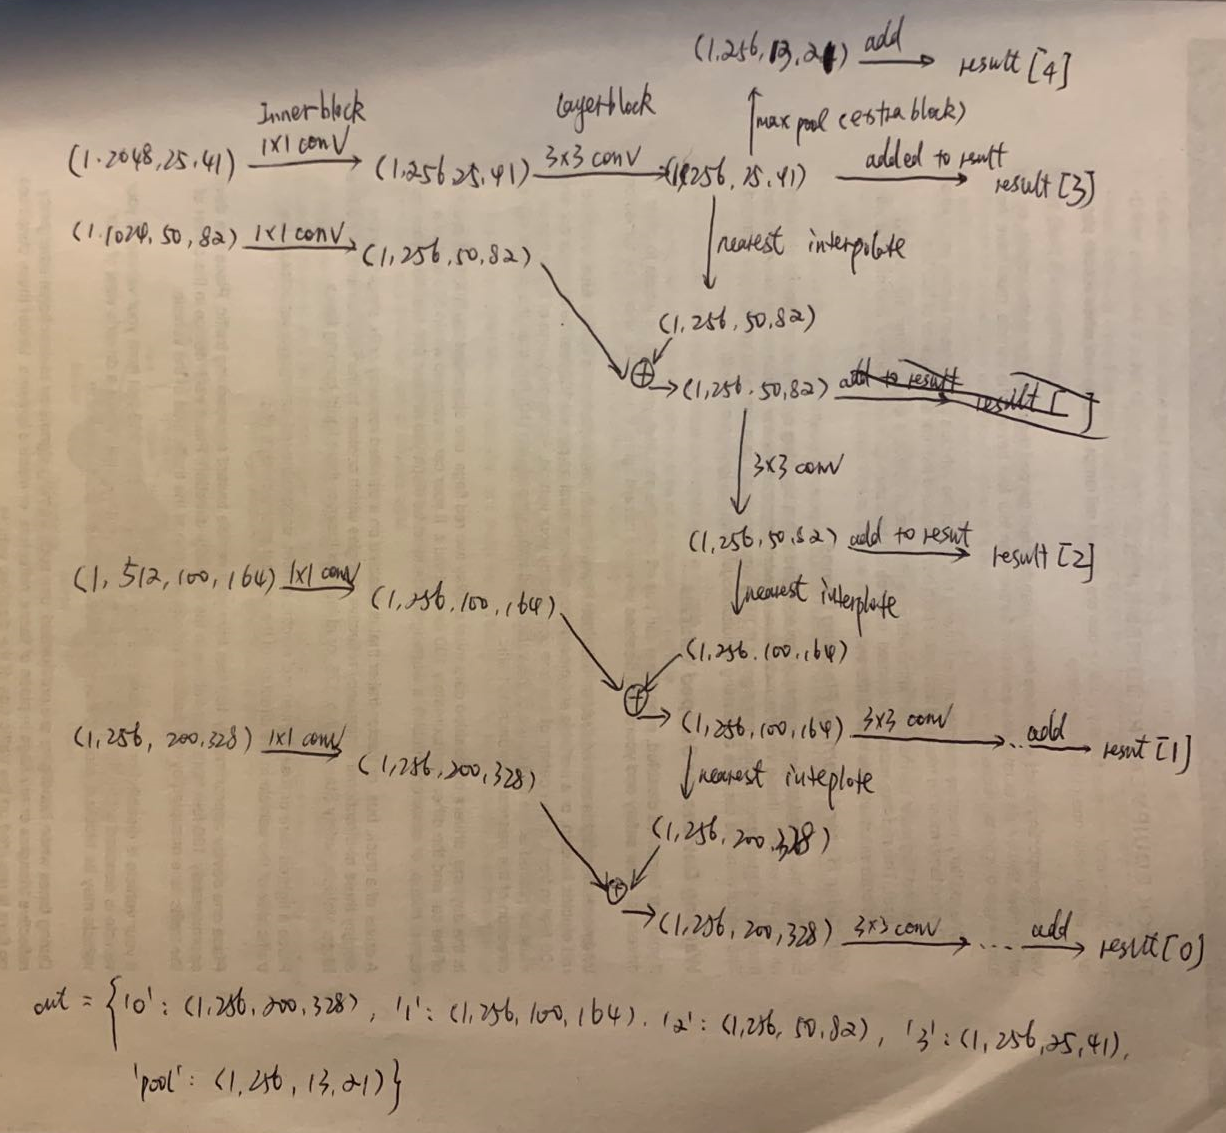 (1,256,13,21) add result [4]
Innerblock Layerblock max pool (extra block)
(1.2048,25,41) 1x1 conv (1,256,25,41) 3x3 conv (1,256,25,41) added to result result [3]
(1.1024,50,82) 1x1 conv (1,256,50,82) nearest interpolate
(1,256,50,82)
⊕ (1,256.50,82) add to result result [ ]
3x3 conv
(1,256,50,82) add to resut result [2]
(1,512,100,164) 1x1 conv (1,256,100,164) nearest interplate
(1,256.100,164)
⊕ (1,256,100,164) 3x3 conv ... add result [1]
(1,256,200,328) 1x1 conv (1,256,200,328) nearest inteplate
(1,256,200,328)
⊕ (1,256,200,328) 3x3 conv .... add result [0]
out = {'0': (1,256,200,328), '1': (1,256,100,164). '2': (1,256,50,82), '3': (1,256,25,41),
'pool': (1,256,13,21)}